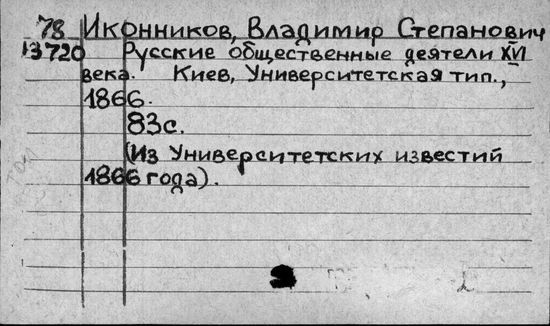 78 Иконников, Владимир Степанович
13720 Русские общественные деятели XVI
века. Киев, Университетская тип.,
1866.
83с.
(Из Университетских известий
1866 года).